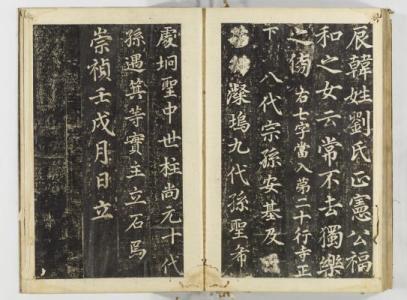 辰韓姓劉氏正憲公福
和之女云常不去獨樂
之傍 右七字當入第二十行寺正
下 八代宗孫安基及
塢九代孫聖希
處坰聖中世柱尚元十代
孫遇箕等實主立石焉
崇禎壬戌月日立